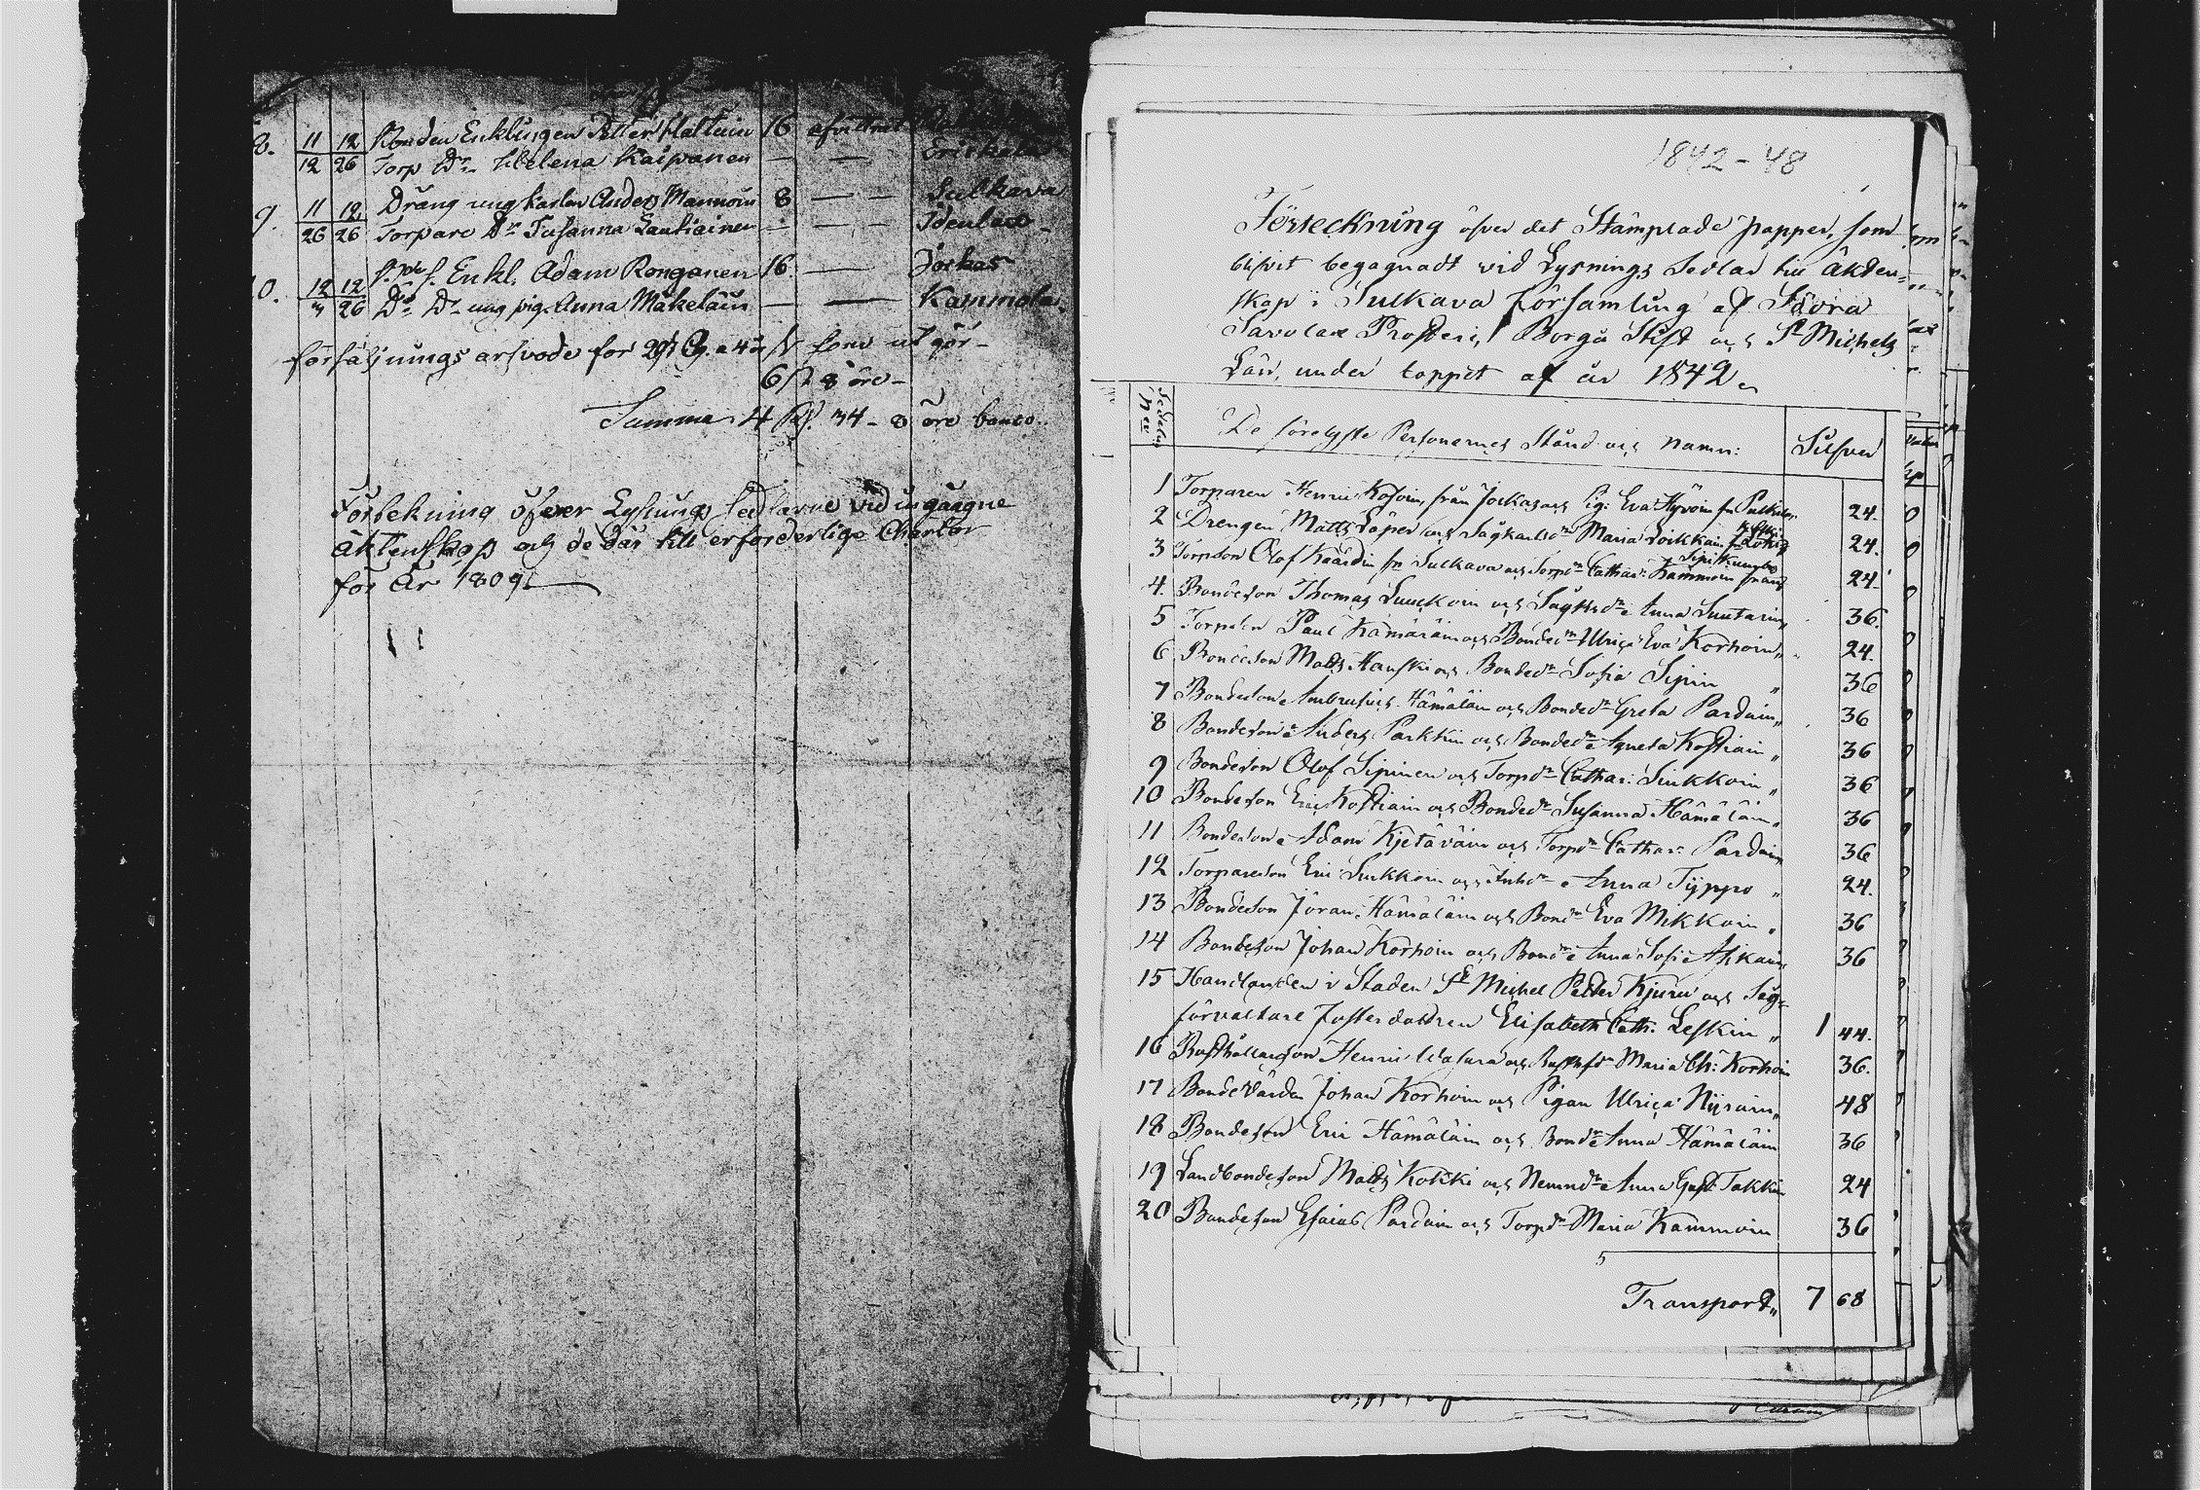 8. 11 12 Bonden Enklingen Petter Haltuin 16 afvittrat
12 26 Torp Dr Helena Kaipanen — —
9. 11 12 Dräng ung karlen Anders Mannoin 8 — — Sulkava
26 26 Torpare Dr Susanna Lautiainen — — Idenlax
10. 12 12 Enkl. Adam Ronganen 16 — Jockas
3 26 Do Dr ung pig. Anna Mäkeläin — — Kammola
försäljnings arfvode för som utgör
6 ß 8 öre
Summa 4 34 - 8 öre banco
Förtekning öfver Lysnings sedlarne vid ingångne
äktenskap och de där till erforderlige Chartor
för år 1809
1842-48
Förteckning öfver det Stämplade papper, som
blifvit begagnadt vid Lysnings Sedlar till äkten-
skap i Sulkava församling af Södra
Savolax Prosteri, Borgå Stift och St Michels
Län, under loppet af år 1842
Sedelns Ner De förelyste Personernes Stånd och namn: Silfver
1 Torparen Henric Kosoin, från Jockas och Pig. Eva Hyvöin fr. 24.
2 Drengen Matts Löper och Sågkarlsdr Maria Loikkain 24.
3 Torpson Olof Käärdin fr Sulkava och Torpdr Cathar: Kammoin 24
4. Bondeson Thomas Luuckoin och Sågksdr Anna Suutarin 36.
5 Torpson Paul Hämäläin och Bondedr Ulrica Eva Korhoin 24.
6 Bondeson Matts Hauski och Bondedr Sofia Sipin " 36
7 Bondeson Ambrusius Hämäläin och Bondedr Greta Pardain 36
8 Bondeson Anders Parkkin och Bondedr Agneta Kostiain " 36
9 Bondeson Olof Sipinen och Torpdr Cathar: Sinkkoin " 36
10 Bondeson Eric Kostiain och Bondedr Susanna Hämäläin 36
11 Bondeson Adam Kjetäväin och Torpdr Cathar: Pardain 36
12 Torpareson Eric Sinkkoin och Inhdr Anna Typpo " 24.
13 Bondeson Jöran Hämäläin och Bondr Eva Mikkoin " 36
14 Bondeson Johan Korhoin och Bondr Anna Sofia Askain 36
15 Handlanden i Staden St Michel Petter Kjuru och Såg-
förvaltare Fosterdottren Elisabeth Cath: Leskin " 1 44.
16 Rusthållareson Henric och Rusthdr Maria Ch: Korhoin 36.
17 Bondeverden Johan Korhoin och Pigan Ulrica 48
18 Bondeson Eric Hämäläin och Bondr Anna Hämäläin 36
19 Landbondeson Matts Kokki och Nemndr Anna Gust: Takkin 24
20 Bondeson Esaias Pardain och Torpdr Maria Kammoin 36
Transport 7 68